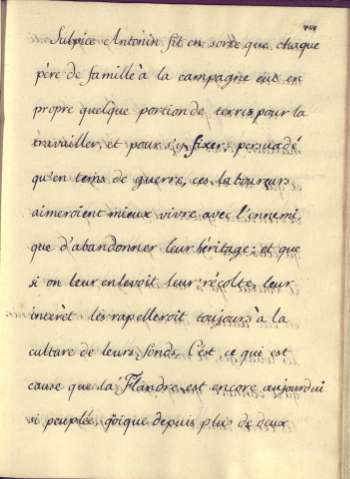 Sulpice Antonin fit en sorte que chaque
père de famille à la campagne eut en
propre quelque portion de terre pour la
travailler, et pour s'y fixer; persuadé
qu'en tems de guerre, ces laboureurs
aimeroient mieux vivre avec l'ennemi,
que d'abandonner leur héritage: et que
si on leur enlevoit leur récolte, leur
interêt les rapelleroit toujours à la
culture de leurs fonds. C'est ce qui est
cause que la Flandre est encore aujourdui
si peuplée, qoique depuis plus de deux